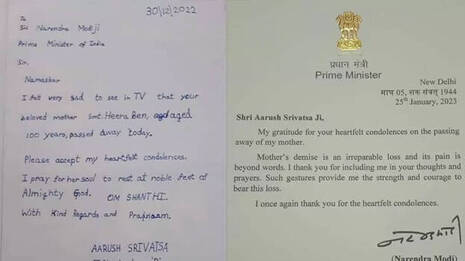 30/12/2022
To
Sri Narendra Modiji
Prime Minister of India
Sir,
Namaskar
I felt very sad to see in TV that your
beloved mother Smt. Heera Ben, aged
100 years, passed away today.
Please accept my heartfelt condolences.
I pray for her soul to rest at noble feet of
Almighty God. OM SHANTHI.
With Kind Regards and Pranaam.
AARUSH SRIVATSA
प्रधान मंत्री
Prime Minister
New Delhi
माघ 05, शक संवत् 1944
25th January, 2023
Shri Aarush Srivatsa Ji,
My gratitude for your heartfelt condolences on the passing
away of my mother.
Mother's demise is an irreparable loss and its pain is
beyond words. I thank you for including me in your thoughts and
prayers. Such gestures provide me the strength and courage to
bear this loss.
I once again thank you for the heartfelt condolences.
(Narendra Modi)